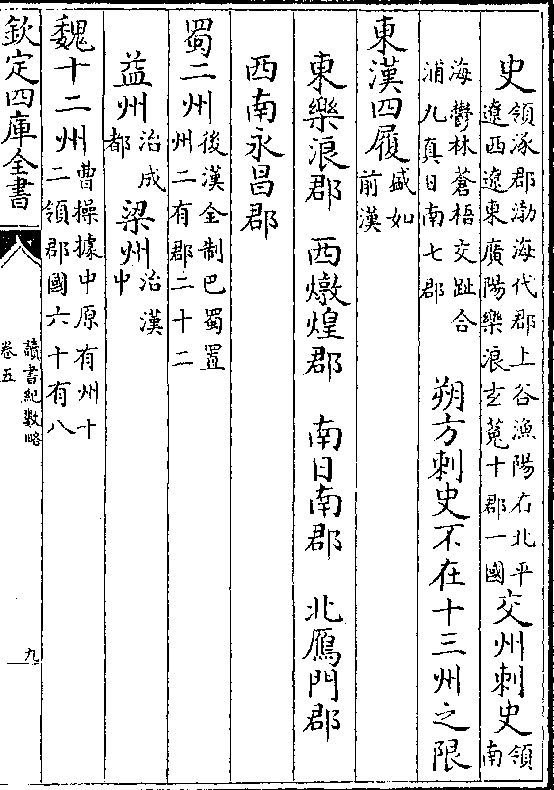 史領涿郡渤海代郡上谷漁陽右北平遼西遼東廣陽樂浪玄菟十郡一國 交州刺史領南
海鬱林蒼梧交趾合浦九真日南七郡 朔方刺史不在十三州之限
東漢四履盛如前漢
東樂浪郡 西燉煌郡 南日南郡 北鴈門郡
西南永昌郡
蜀二州後漢全制巴蜀置州二有郡二十二
益州治成都 梁州治漢中
魏十二州曹操據中原有州十二領郡國六十有八
欽定四庫全書
讀書紀數略
卷五
九